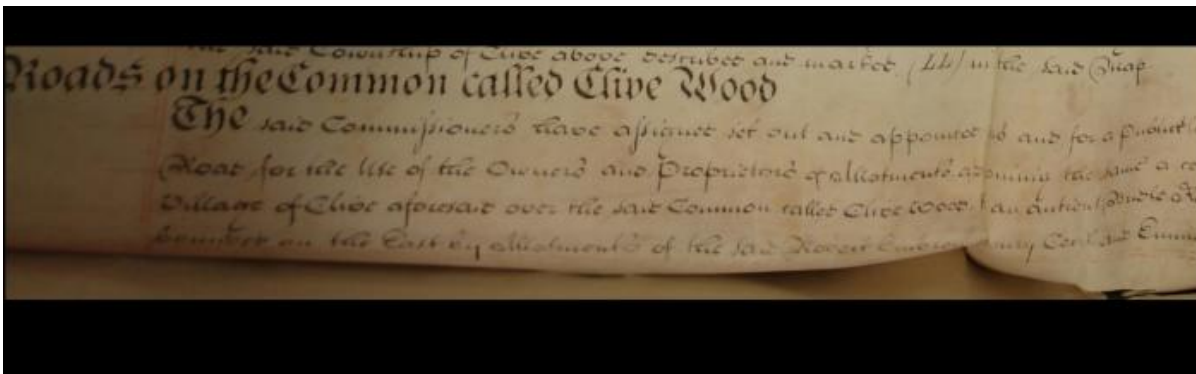 the said Township of Clive above described and marked (44) in the said Map
Roads on the Common called Clive Wood
The said Commissioners have assigned set out and appointed as and for a Public
Road for the Use of the Owners and Proprietors of allotments adjoining the same a
Village of Clive aforesaid over the said Common called Clive Wood an antient
bounded on the East by allotments of the said Robert and